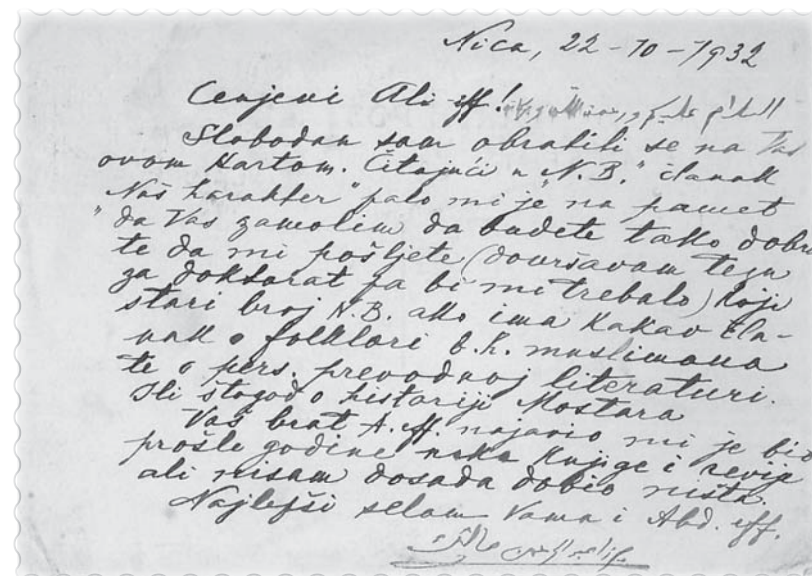 Nica, 22-10-1932
Cenjeni Ali eff! السلام عليكم ورحمة الله وبركاته
Slobodan sam obratiti se na Vas
ovom Kartom. Čitajući u "N.B." članak
"Naš harakter" palo mi je na pamet
da Vas zamolim da budete tako dobri
te da mi pošljete (dovršavam tezu
za doktorat pa bi mi trebalo) koji
stari broj N.B. ako ima kakav čla-
nak o folklori b.h. muslimana
te o pers. prevodnoj literaturi.
Ili štogod o historiji Mostara
Vaš brat A. eff. najavio mi je bio
prošle godine neke knjige i revije
ali nisam dosada dobio ništa.
Najlepši selam Vama i Abd. eff.